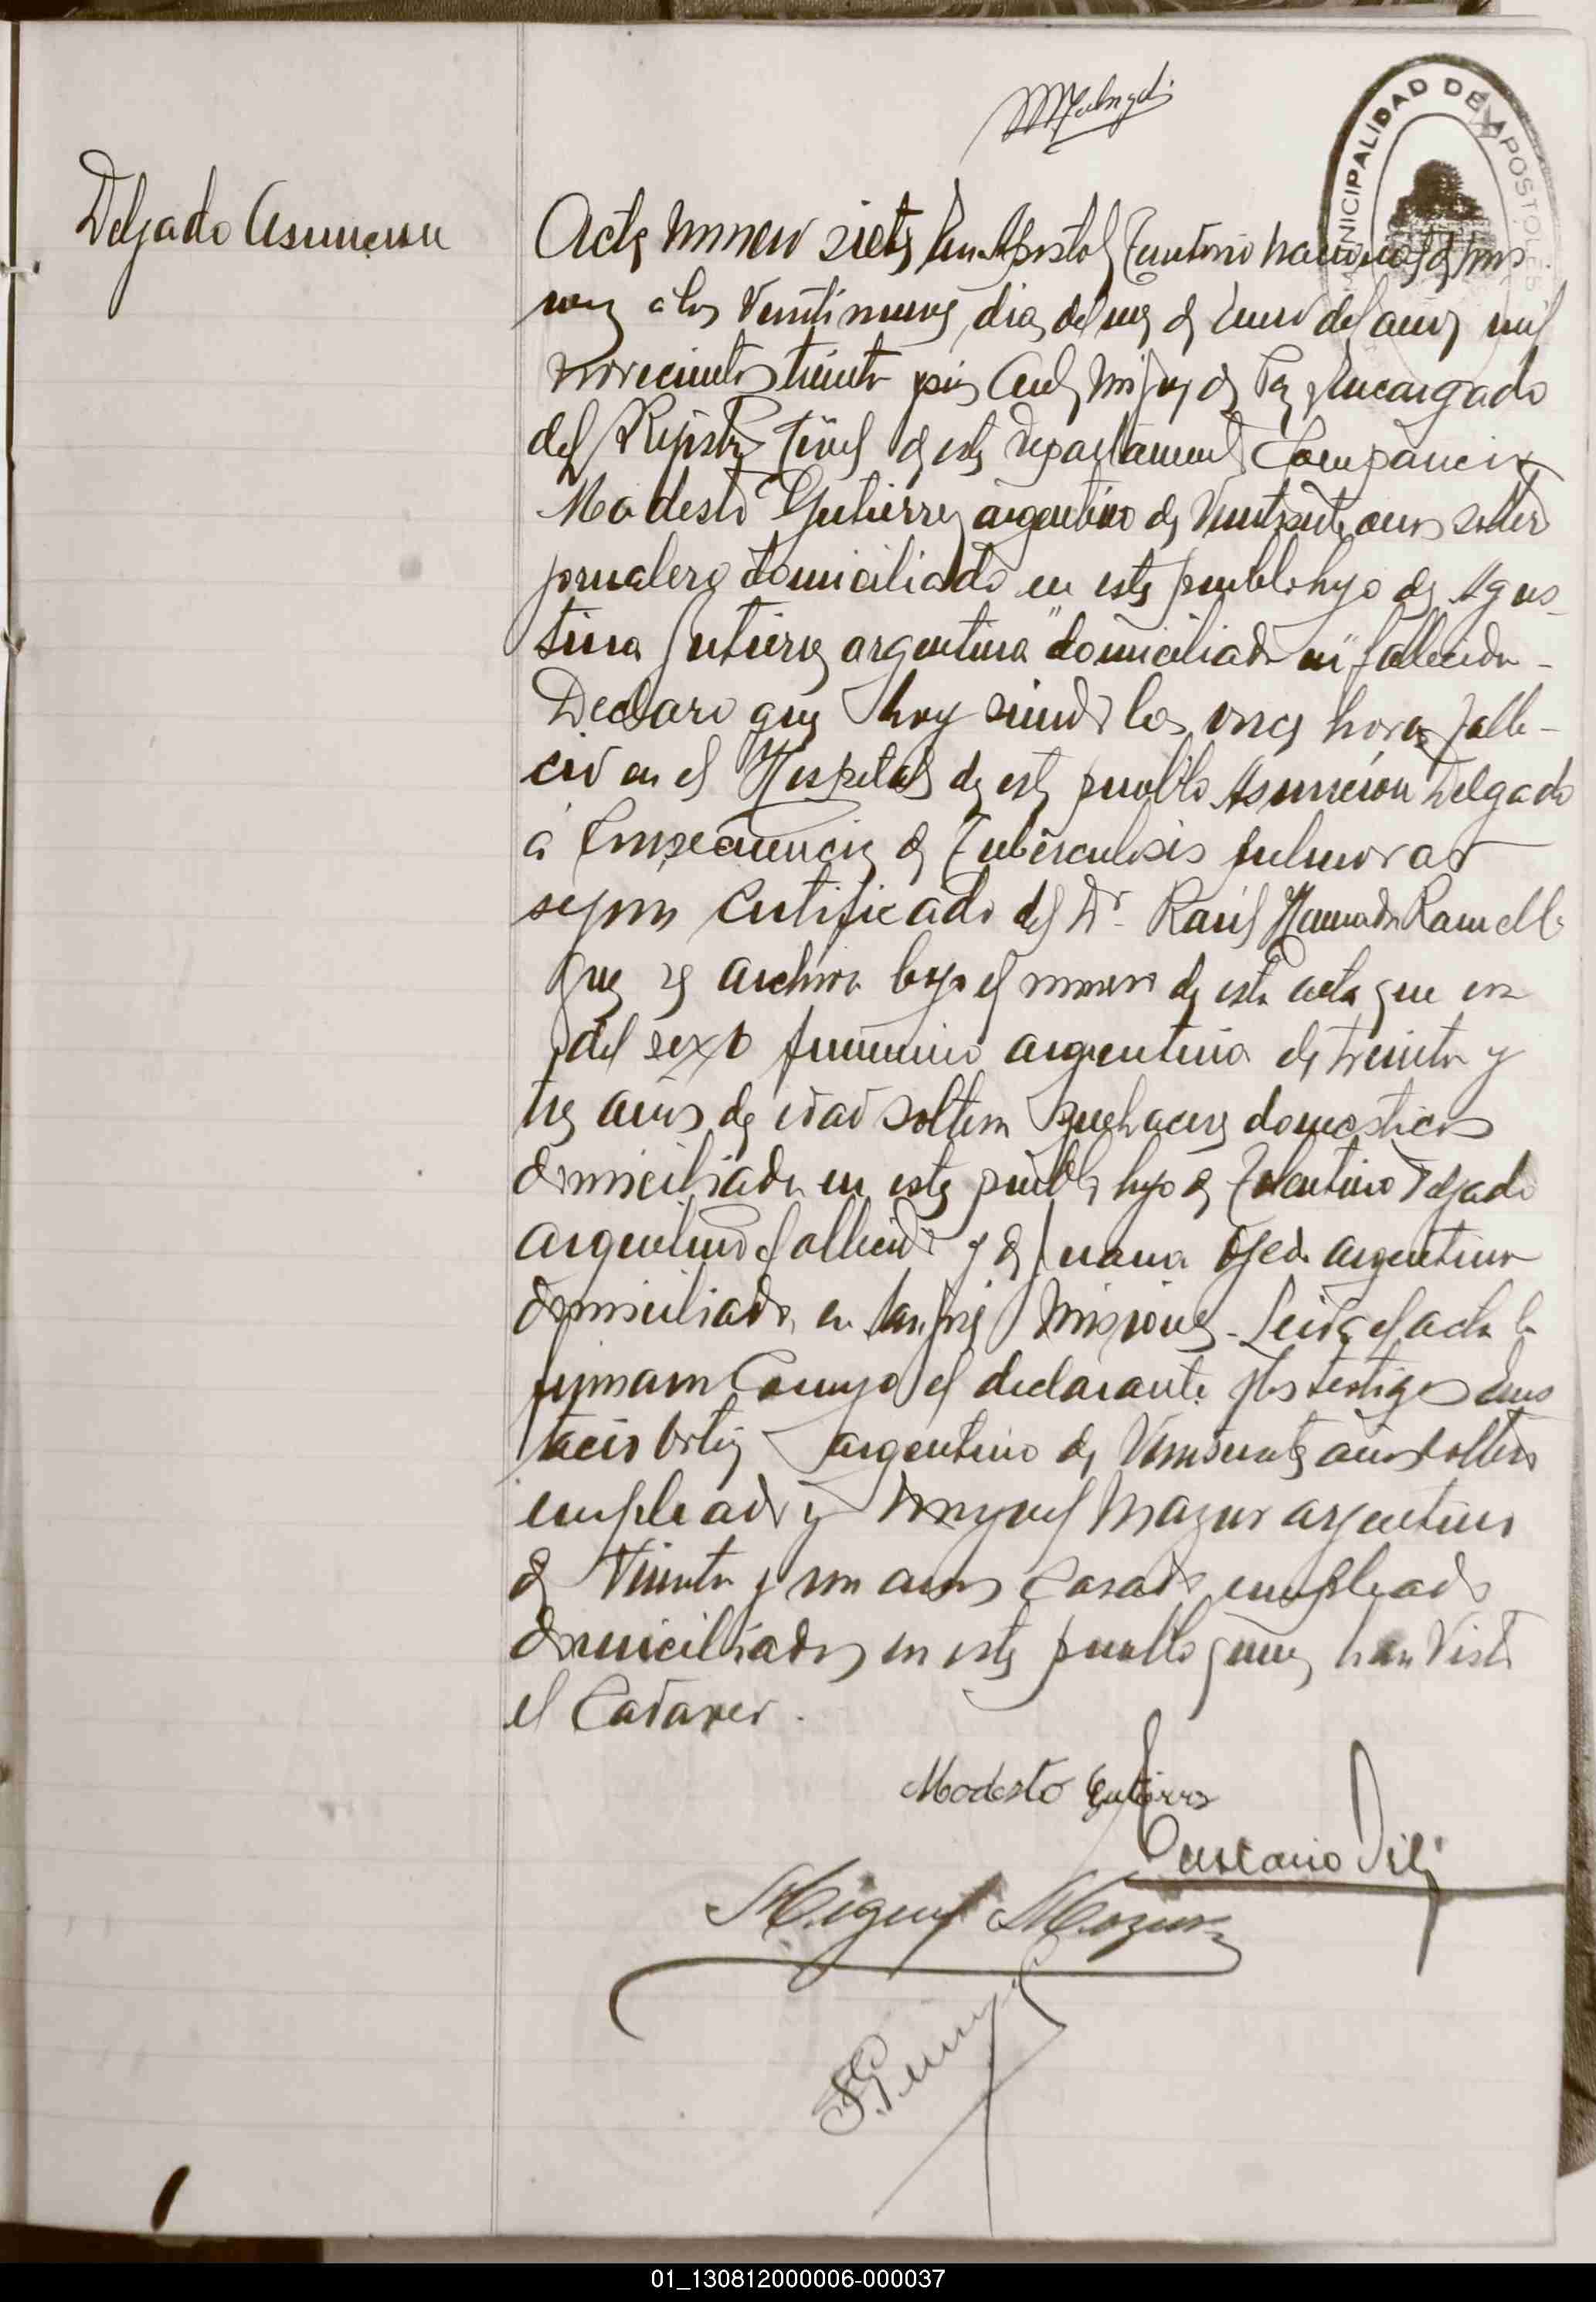 MUNICIPALIDAD DE APOSTOLES
Delgado Asuncion
Acta numero siete En Apostoles Territorio nacional de Misio
nes a los Veintinueve dias del mes de Enero del año mil
novecientos treinta y seis Ante mi Juez de Paz y Encargado
del Registro Civil de este departamento Comparecio
Modesto Gutierrez argentino de Veintisiete años soltero
jornalero domiciliado en este pueblo hijo de Agus-
tina Gutierrez argentina "domiciliada en" fallecida -
Declaro que hoy siendo las once horas falle-
cio en el Hospital de este pueblo Asuncion Delgado
a Consecuencia de Tuberculosis pulmonar
segun Certificado del Dr. Raúl
que se archiva bajo el numero de esta acta que era
del sexo femenino argentina de treinta y
tres años de edad soltera quehaceres domesticos
domiciliada en este pueblo hija de Tolentino Delgado
argentino fallecido y de Juana Ojeda argentina
domiciliada en San José Misiones - Leida el acta la
firmaron Conmigo el declarante y los testigos Eus
tacio Ortiz argentino de años soltero
empleado y Miguel Mazur argentino
de y un años Casado empleado
domiciliados en este pueblo quienes han Visto
el Cadaver.
Modesto Gutierrez
Eustacio Ortiz
Miguel Mazur
01_130812000006-000037